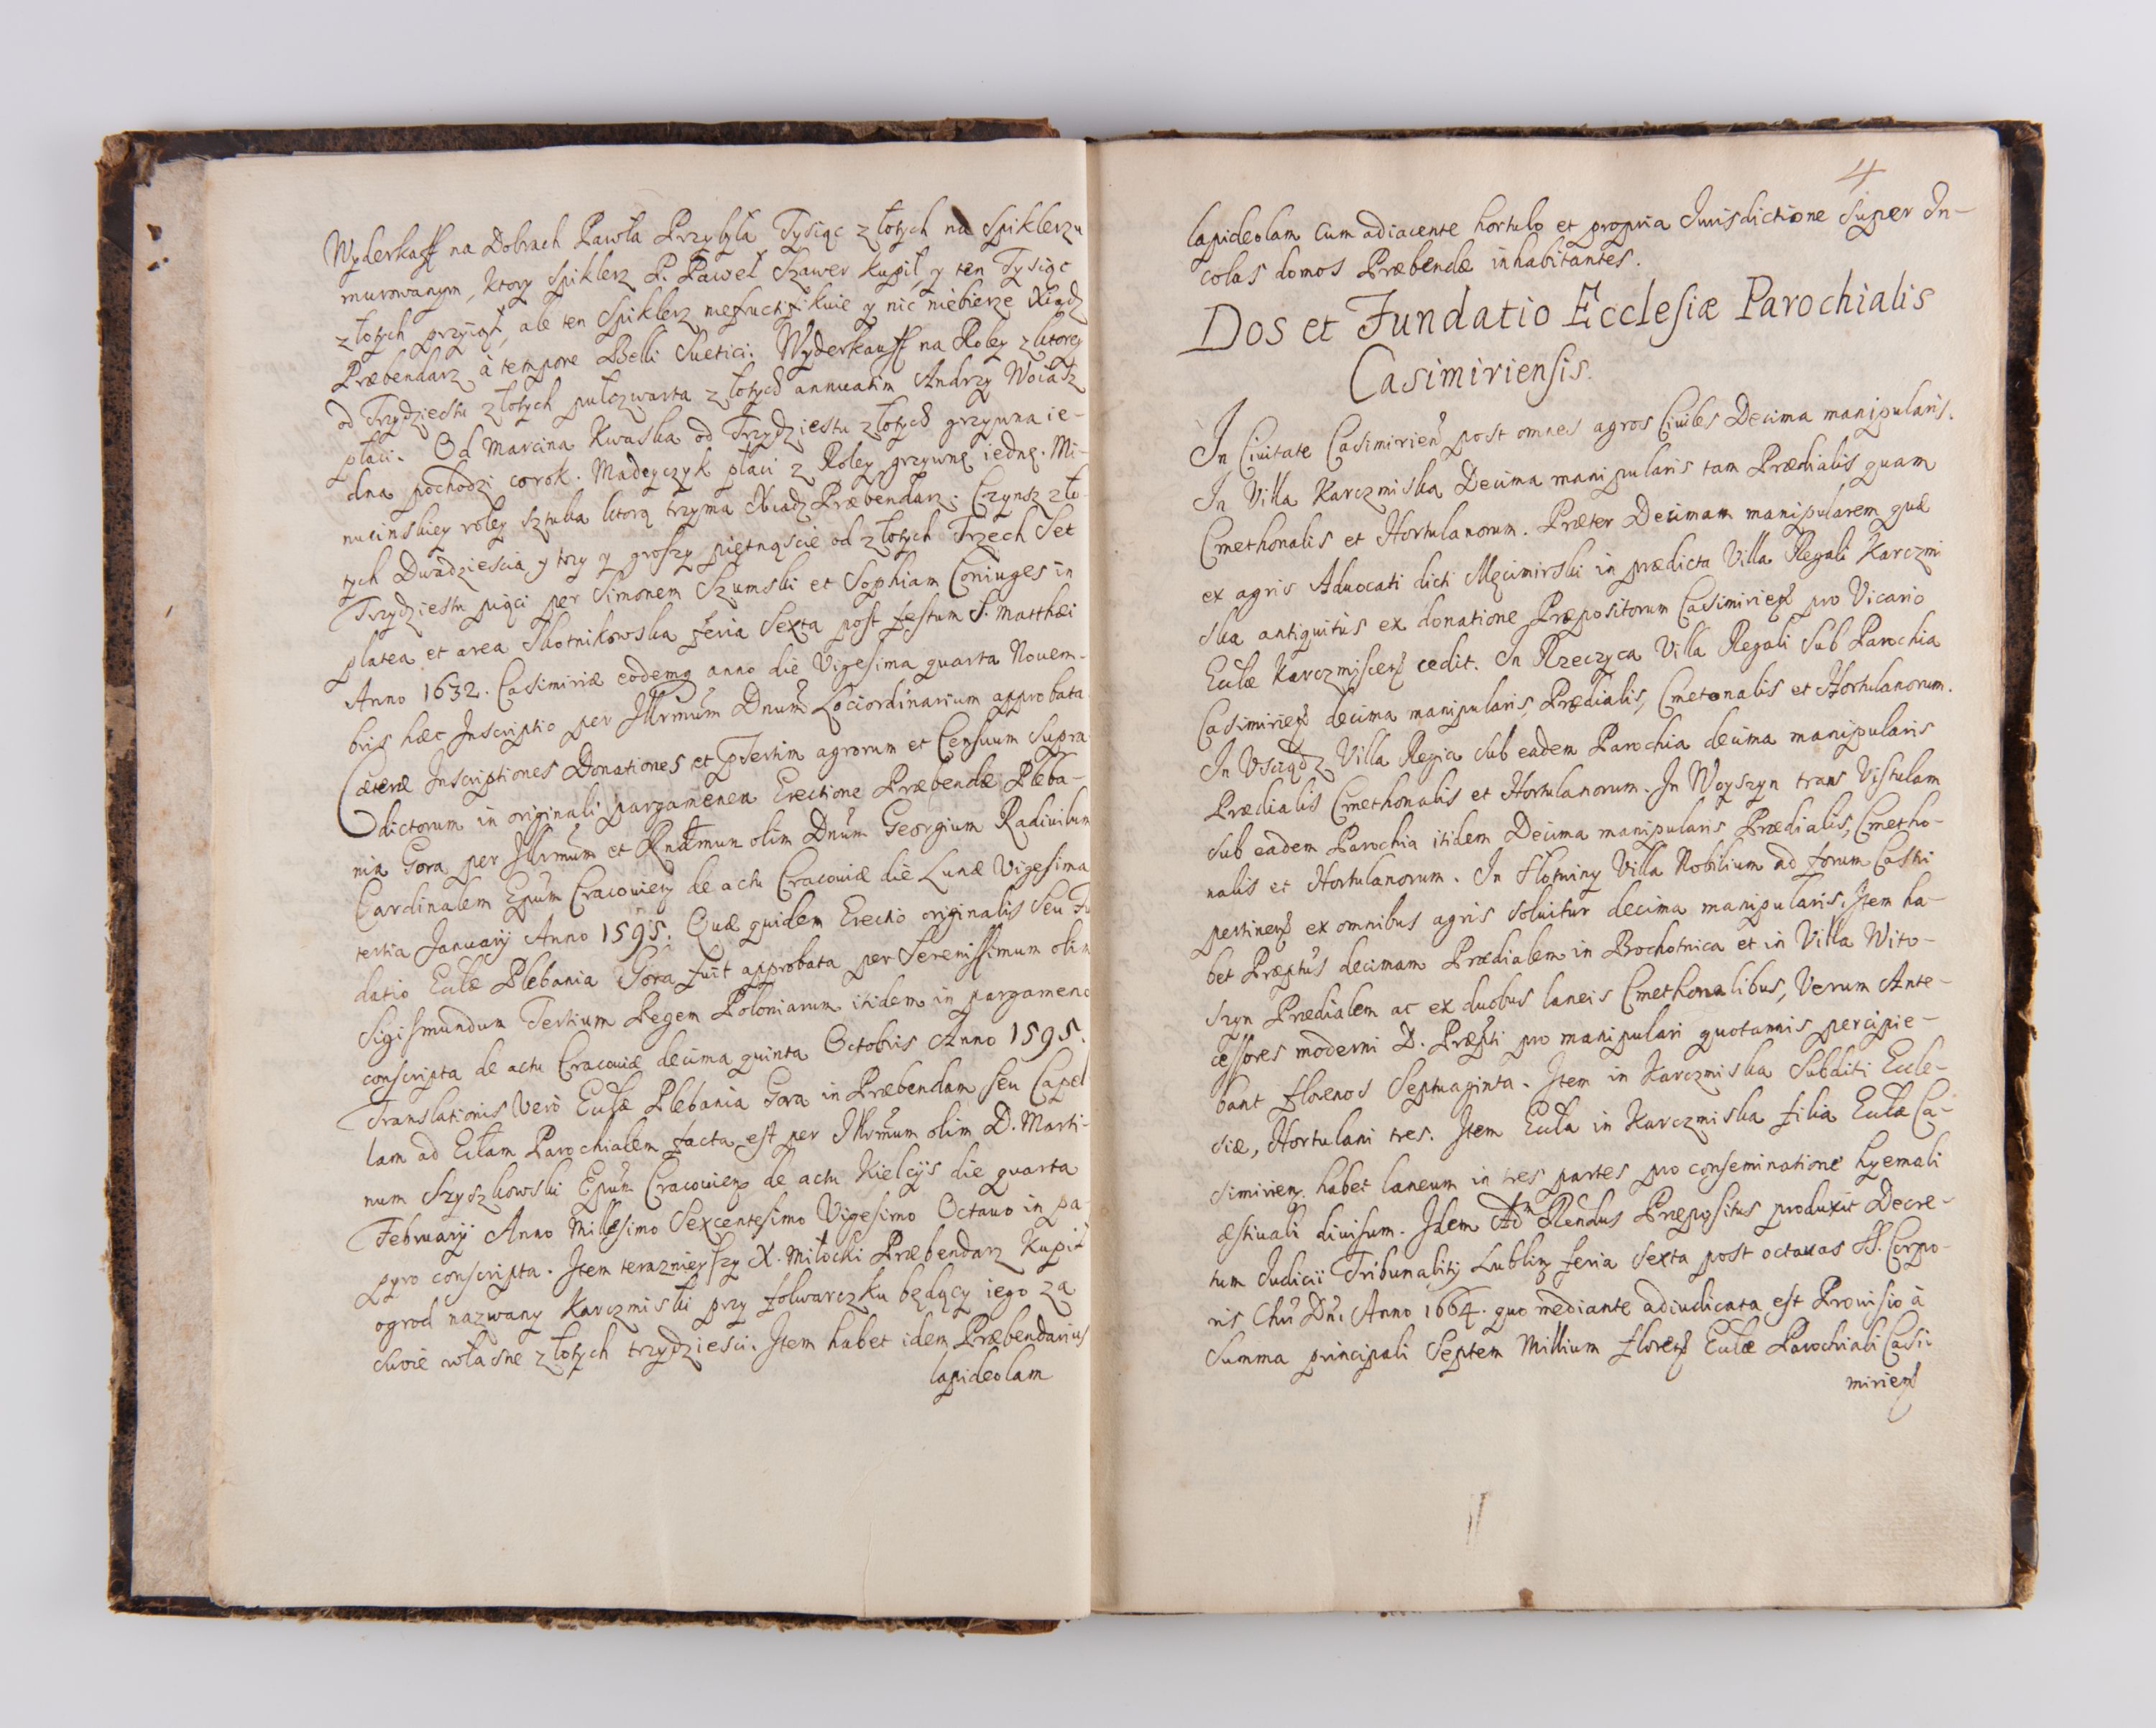 Wyderkaff na Dobrach Pawła Przybyła Tysiąc złotych na Spiklerzu
murowanym, ktory Spiklerz P. Paweł Szawer kupił, y ten Tysiąc
złotych przyiął, ale ten Spiklerz nefructifikuie y nic niebierze Xiądz
Præbendarz à tempore Belli Suetici. Wyderkauff na Roley z ktorey
od Trzydziestu złotych pułczwarta złotych annuatim Andrzy Wociasz
płaci. Od Marcina Kwaska od Trzydziestu złotych grzywna ie-
dna pochodzi corok. Madeyczyk płaci z Roley grzywnę iednę. Mi-
nucinskiey roley sztuka ktorą trzyma Xiądz Præbendarz. Czynsz zło-
tych Dwadziescia y trzy y groszy piętnąscie od złotych Trzech Set
Trzydziestu piąci per Simonem Szumski et Sophiam Coniuges in
platea et area Skotnikowska feria Sexta post festum S. Matthæi
Anno 1632. Casimiriæ eodemq anno die Vigesima quarta Novem-
bris hæc Inscriptio per Illrmum Dnum Lociordinarium approbata
Cæteræ Inscriptiones Donationes et pſertim agrorum et Censuum Supra
dictorum in originali pargamenea Erectione Præbendæ Pleba-
nia Gora per Illrmum et Rndmum olim Dnum Georgium Radiuilum
Cardinalem Epum Cracouien de actu Cracouiæ die Lunæ Vigesima
tertia Januarij Anno 1595. Quæ quidem Erectio originalis seu Fu
datio Eclæ Plebania Gora fuit approbata per Serenissimum olim
Sigismundum Tertium Regem Poloniarum itidem in pargameno
conscripta de actu Cracouiæ decima quinta Octobris Anno 1595.
Translationis Verò Eclæ Plebania Gora in Præbendam seu Capel
lam ad Eclam Parochialem facta est per Illrmum olim D. Marti-
num Szyszkowski Epum Cracouien de actu Kielcijs die quarta
February Anno Millesimo Sexcentesimo Vigesimo Octauo in pa-
pyro conscripta. Item terazniejszy X. Miłocki Præbendarz kupił
ogrod nazwany Karczmiski przy folwarczku będący iego za
swoie własne złotych trzydziesci. Item habet idem Præbendarius
lapideolam
4
lapideolam cum adiacente hortulo et propria Jurisdictione Super In-
colas domos Præbendæ inhabitantes.
Dos et Fundatio Ecclesiæ Parochialis
Casimiriensis.
In Ciuitate Casimirien post omnes agros Ciuiles Decima manipularis.
In Villa Karczmiska Decima manipularis tam Prædialis quam
Cmethonalis et Hortulanorum. Præter Decimam manipularem quæ
ex agris Aduocati dicti Męcimirski in prædicta Villa Regali Karczmi
ska antiquitùs ex donatione Præpositorum Casimirien pro Vicario
Eclæ Karczmiscen cedit. In Rzeczyca Villa Regali Sub Parochia
Casimirien decima manipularis, Prædialis, Cmetonalis et Hortulanorum.
In Vsciądz Villa Regia sub eadem Parochia decima manipularis
Prædialis Cmethonalis et Hortulanorum. In Woyszyn trans Vistulam
sub eadem Parochia itidem Decima manipularis Prædialis, Cmetho-
nalis et Hortulanorum. In Słotwiny Villa Nobilium ad forum Castri
pertinen ex omnibus agris soluitur decima manipularis. Item ha-
bet Præptus decimam Prædialem in Bochotnica et in Villa Wito-
szyn Prædialem ac ex duobus laneis Cmethonalibus, Verum Ante-
cessores moderni D. Præpti pro manipulari quotannis percipie-
bant florenos Septuaginta. Item in Karczmiska Subditi Eccle-
siæ, Hortulani tres. Item Ecla in Karczmiska filia Eclæ Ca-
simirien. habet laneum in tres partes pro conseminatione hyemali
æstiuali diuisum. Idem Adm Rendus Præpositus produxit Decre-
tum Judicii Tribunalitij Lublin feria Sexta post octauas SS. Corpo-
ris Chri Dni Anno 1664. quo mediante adiudicata est Prouisio à
Summa principali Septem Millium floren Eclæ Parochiali Casi-
mirien